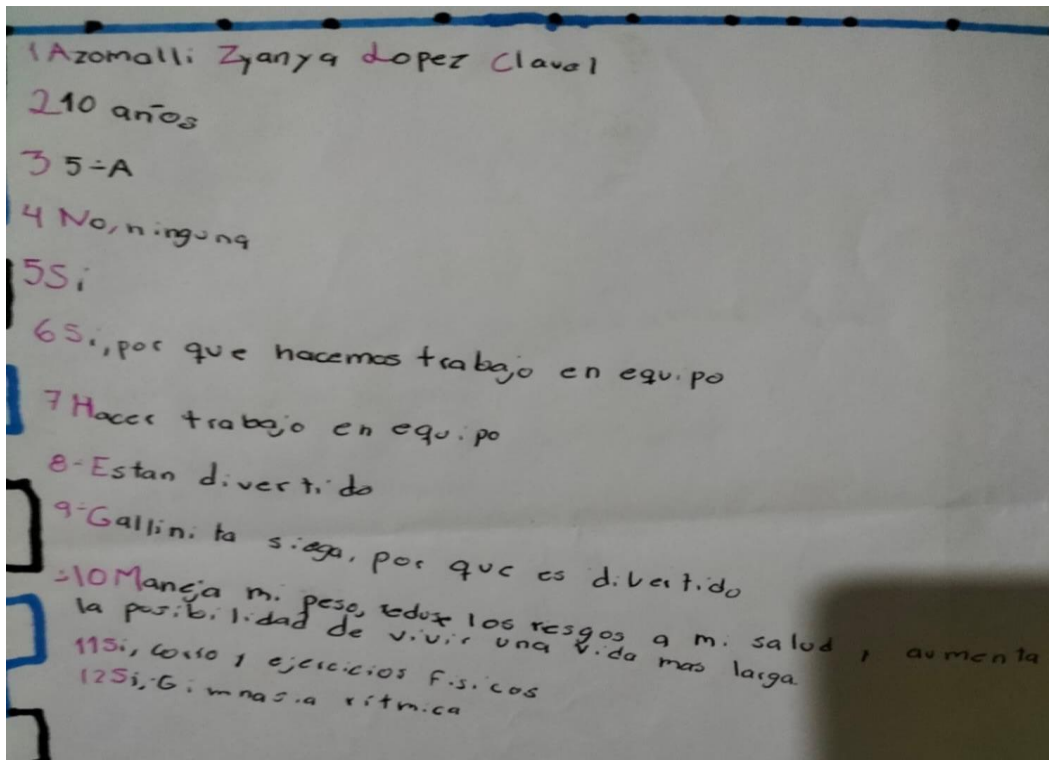 1 Azomalli Zyanya Lopez Clavel
2 10 años
3 5-A
4 No, ninguna
5 Si
6 Si, por que hacemos trabajo en equipo
7 Hacer trabajo en equipo
8-Estan divertido
9-Gallinita siega, por que es divertido
-10 Maneja mi peso, reduse los resgos a mi salud, aumenta
la posibilidad de vivir una vida mas larga
11 Si, corro y ejercicios fisicos
12 Si, Gimnasia rítmica